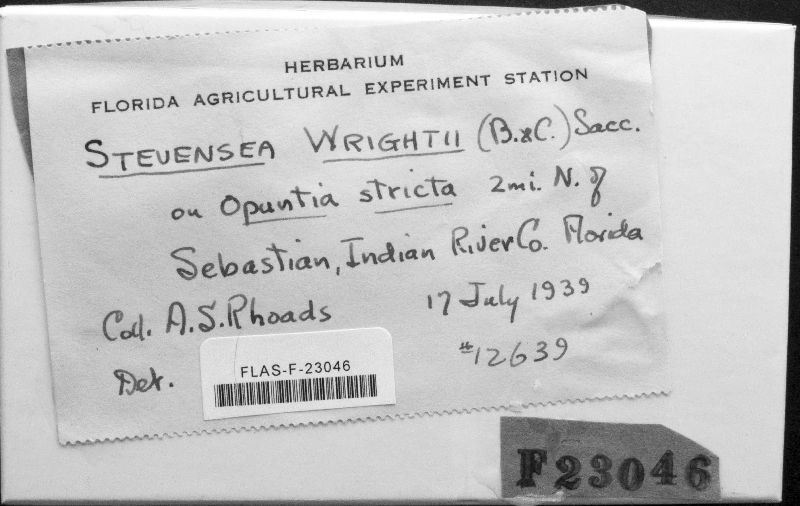 HERBARIUM
FLORIDA AGRICULTURAL EXPERIMENT STATION
STEVENSEA WRIGHTII (B.&C.) Sacc.
on Opuntia stricta 2mi. N. of
Sebastian, Indian River Co. Florida
Coll. A.S. Rhoads 17 July 1939
Det. #12639
FLAS-F-23046
F23046